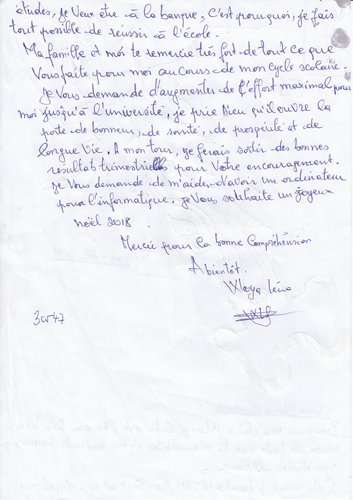 études, je Veux être à la banque, c'est pourquoi, je fais
tout possible de réussir à l'école.
Ma famille et moi te remercie très fort de tout ce que
Vous faite pour moi au cours de mon cycle scolaire.
Je Vous demande d'augmenter de l'effort maximal pour
moi jusqu'à l'université, je prie Dieu qu'il ouvre la
porte de bonheur, de santé, de prospérité et de
longue vie. A mon tour, je ferais sortir des bonnes
résultats trimestriells pour Votre encouragement.
Je Vous demande de m'aider d'avoir un ordinateur
pour l'informatique. Je Vous souhaite un joyeux
noël 2018.
Mercie pour la bonne Compréhension
A bientôt.